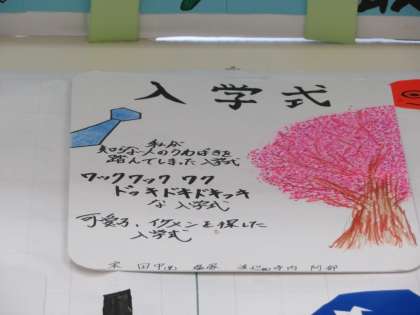 入学式
私が
知らない人のうわばきを
踏んでしまった入学式
ワックワック ワク
ドッキドキドキッキ
な 入学式
可愛い子、イケメンを探した
入学式
田中
寺内 阿部